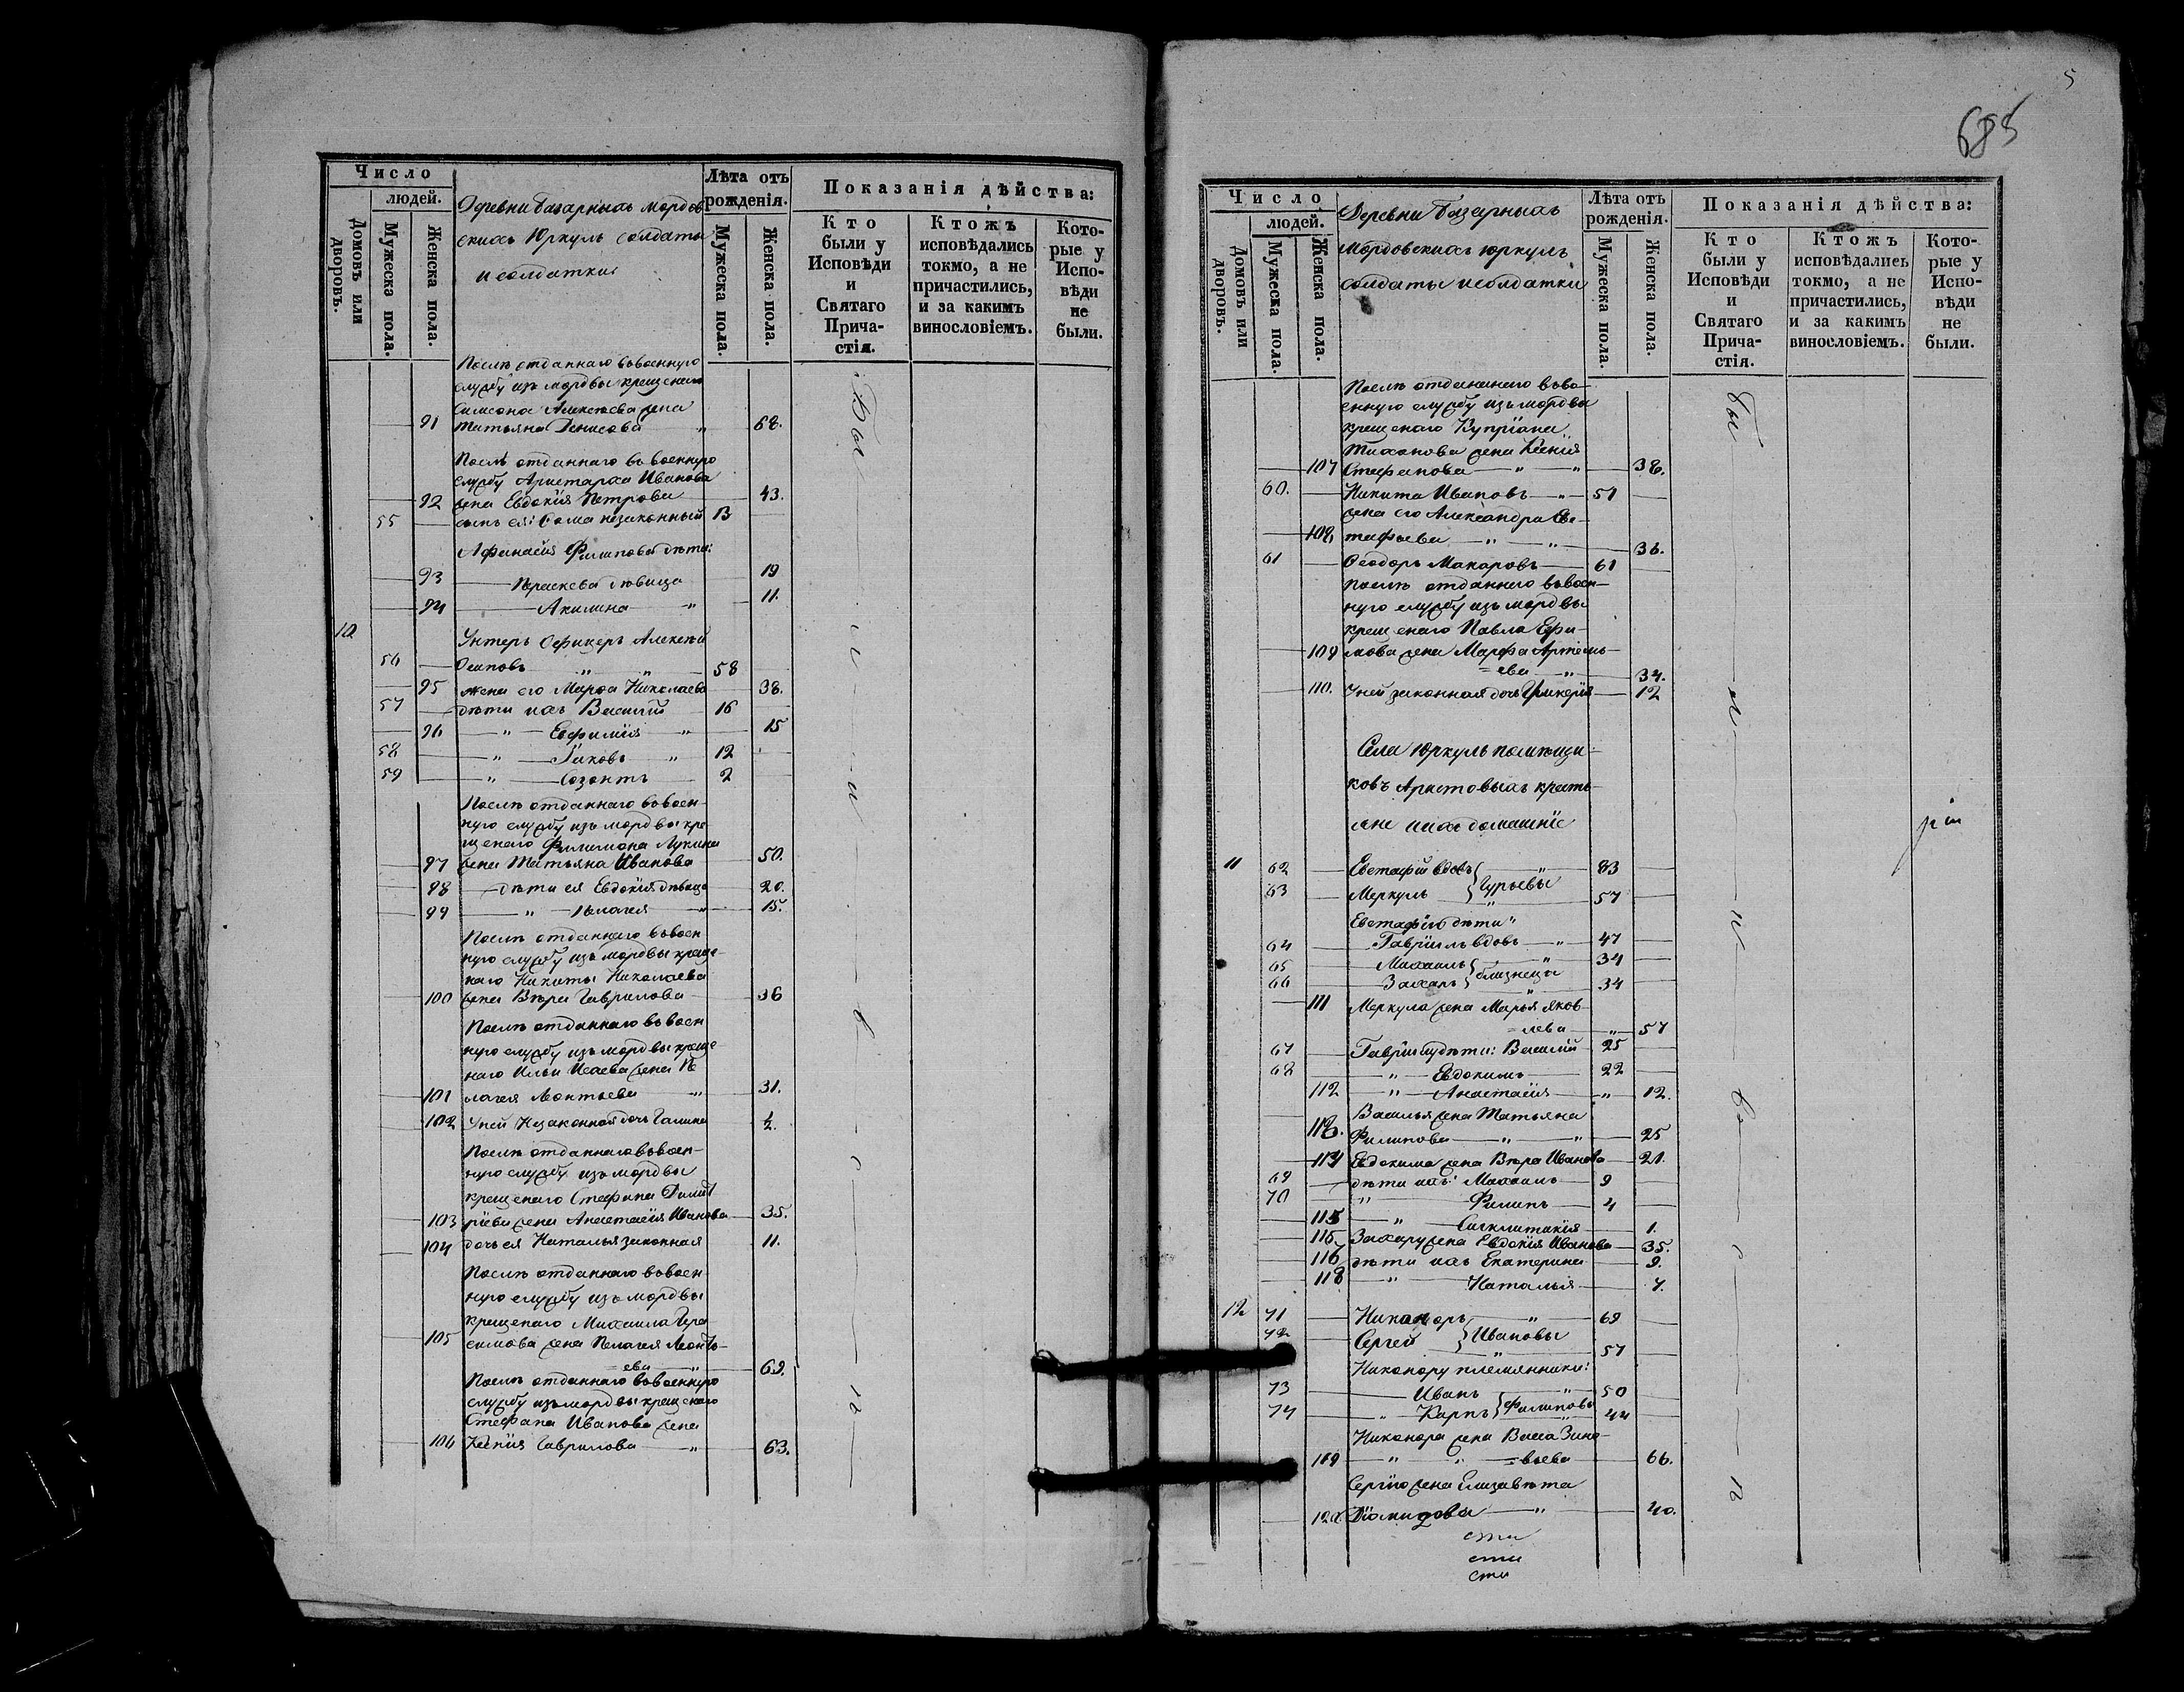 Число
людей.
Домовъ или дворовъ.
Мужеска пола.
Женска пола.
Деревни Базарныхъ Мордов
скихъ Юркуль солдаты
и солдатки
Лѣта отъ рожденія.
Мужеска пола.
Женска пола.
Показанія дѣйства:
Кто были у Исповѣди и Святаго Прича-стія.
Ктожъ исповѣдались токмо, а не причастились, и за какимъ винословіемъ.
Кото-рые у Испо-вѣди не были.
Послѣ отданнаго въ военную
службу изъ мордвы крещенаго
Симеона Алексѣева жена
91 Татьяна Денисова " 68.
Послѣ отданнаго въ военную
службу Аристарха Иванова
92 жена Евдокія Петрова 43.
55 сынъ ея Ѳома незаконный 13
Афанасія Филипова дѣти:
93 Параскева дѣвица 19
94 Акилина " 11.
10 Унтеръ Офицеръ Алексѣй
56 Осиповъ " " 58
95 жена его Марѳа Николаева 38.
57 дѣти ихъ Василій 16
96 " Евфимія " 15
58 " Іаковъ " 12
59 " Созонтъ 2
Послѣ отданнаго въ воен-
ную службу изъ мордвы кре
щенаго Филимона Лукина
97 жена Татьяна Иванова 50.
98 дѣти ея Евдокія дѣвица 20.
99 " Пелагея " 15.
Послѣ отданнаго въ воен
ную службу изъ мордвы креще-
наго Никиты Николаева
100 жена Вѣра Гаврилова 36
Послѣ отданнаго въ воен
ную службу изъ мордвы креще
наго Ильи Исаева жена Пе
101 лагея Леонтьева " 31.
102 У ней Незаконная дочь Галина ½.
Послѣ отданнаго въ воен-
ную службу изъ мордвы
крещенаго Стефана Димит
103 ріева жена Анастасія Иванова 35.
104 дочь ея Наталья законная 11.
Послѣ отданнаго въ воен
ную службу изъ мордвы
крещенаго Михаила Гера
105 симова жена Пелагея Леонть-
=ева " 69.
Послѣ отданнаго въ военную
службу изъ мордвы крещенаго
Стефана Иванова жена
106 Ксенія Гаврилова " 63.
5
685
Число
людей.
Домовъ или дворовъ.
Мужеска пола.
Женска пола.
Деревни Базарныхъ
Мордовскихъ Юркуль
солдаты и солдатки
Лѣта отъ рожденія.
Мужеска пола.
Женска пола.
Показанія дѣйства:
Кто были у Исповѣди и Святаго Прича-стія.
Ктожъ исповѣдались токмо, а не причастились, и за какимъ винословіемъ.
Кото-рые у Испо-вѣди не были.
Послѣ отданнаго въ во-
енную службу изъ мордвы
крещенаго Купріана
Тихонова жена Ксенія
107 Стефанова " " 38.
60. Никита Ивановъ " 51
жена его Александра Ев-
108 тафьева " " 36.
61 Ѳеодоръ Макаровъ 61
Послѣ отданнаго въ воен-
ную службу изъ мордвы
крещенаго Павла Ефи-
109 мова жена Марфа Артемь-
=ева " 34.
110. У ней законная дочь Гликерія 12
Села Юркуль помѣщи-
ковъ Аристовыхъ кресть-
яне и ихъ домашніе
11 62 Евстафій вдовъ " 83
63 Меркулъ } Гурьевы " 57
Евстафія дѣти "
64 Гавріилъ вдовъ " 47
65 Михаилъ " 34
66 Захаръ } близнецы " 34
111 Меркула жена Марья Яков-
=лева " 57
67 Гавріила дѣти: Василій 25
68 " Евдокимъ 22
112 " Анастасія " 12.
Василья жена Татьяна
113. Филипова " " 25
114 Евдокима жена Вѣра Иванова 21.
69 дѣти ихъ: Михаилъ 9
70 " Филипъ 4
115 " Сигклитикія 1.
116 Захару жена Евдокія Иванова 35.
116 дѣти ихъ Екатерина 9.
118 " Наталья 7.
12 71 Никаноръ " 69
72 Сергей } Ивановы " 57
Никанору племянники:
73 Иванъ " 50
74 " Карпъ } Филиповы " 44
Никанора жена Васса Зино-
119 " " =вьева 66.
Сергію жена Елизавѣта
120. Діомидова " 40.
сти
сти
сти